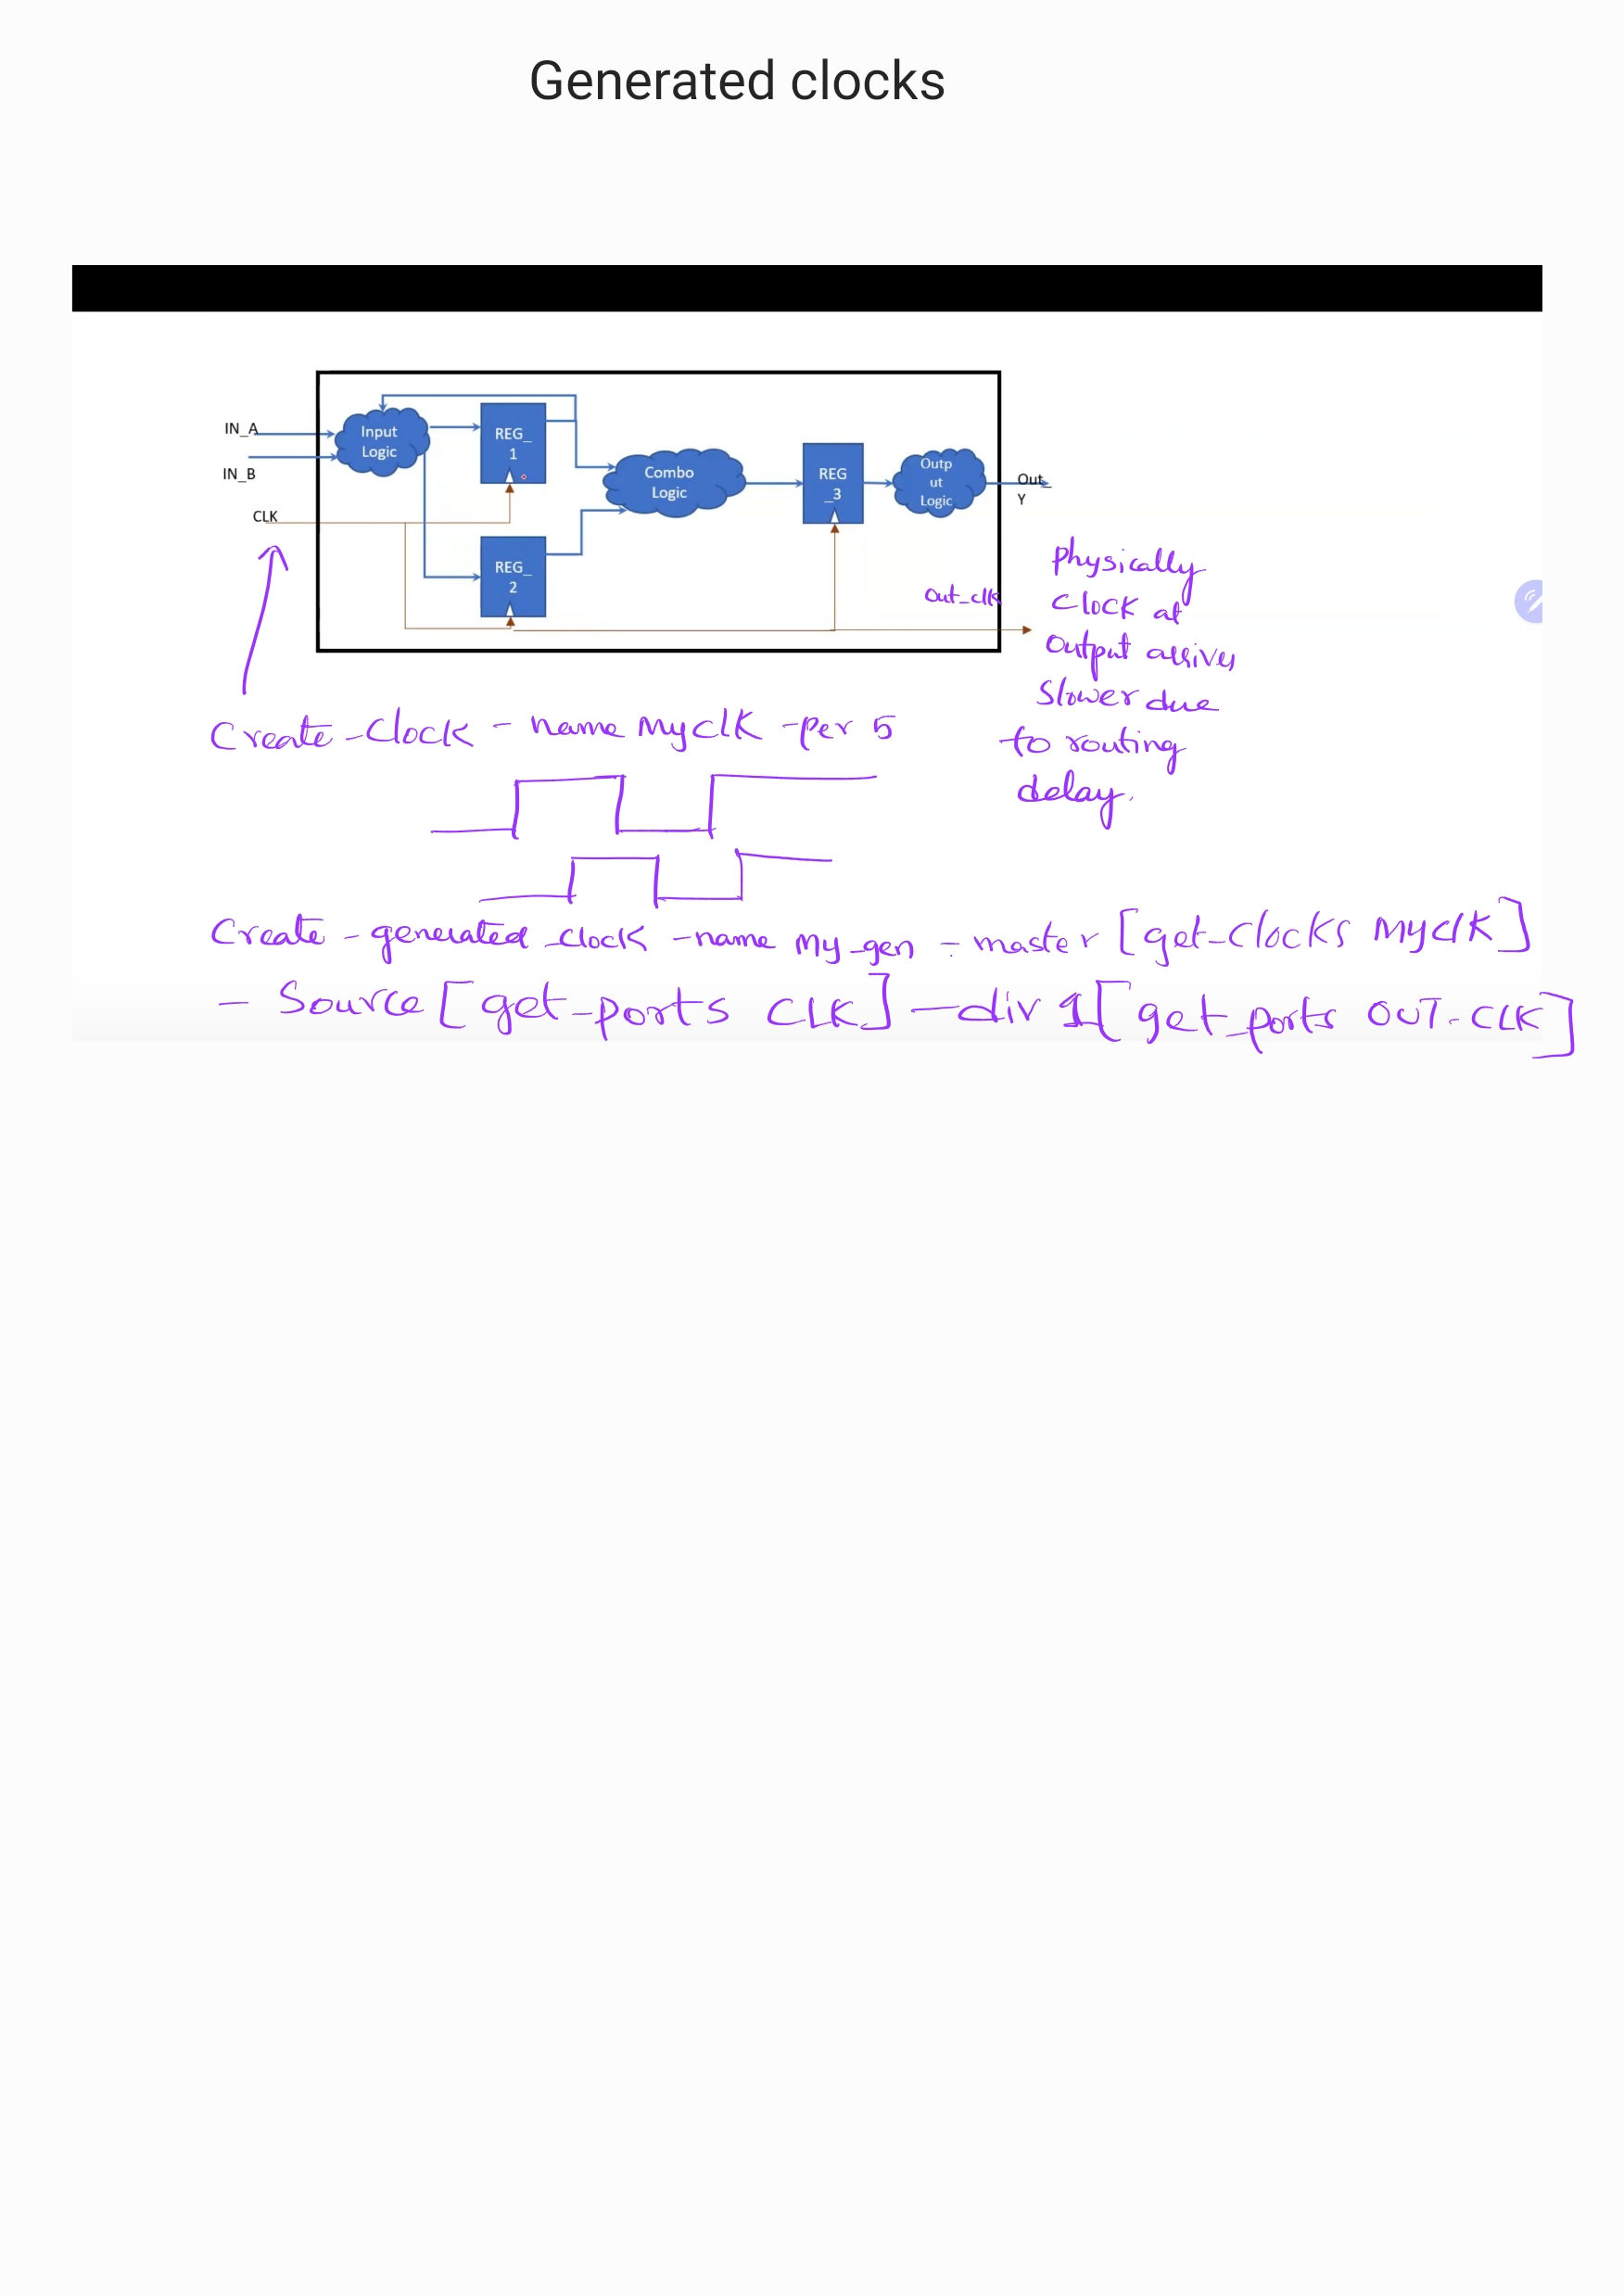 Generated clocks
IN_A
IN_B
CLK
Input
Logic
REG_
1
REG_
2
Combo
Logic
REG
_3
Outp
ut
Logic
Out_
Y
Out_clk
Physically
Clock at
Output arrives
Slower due
to routing
delay.
Create-Clock - name MyClK -per 5
Create-generated_clock -name My_gen -master [get-Clocks MyClK]
- Source [get-ports CLK] -div 1 [get_ports OUT-CLK]